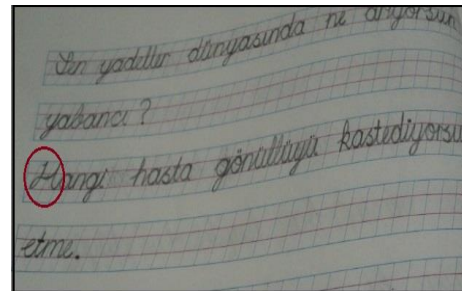 Sen yadeller dünyasında ne arıyorsun
yabancı?
Hangi hasta gönüllüyü kastediyorsu
etme.